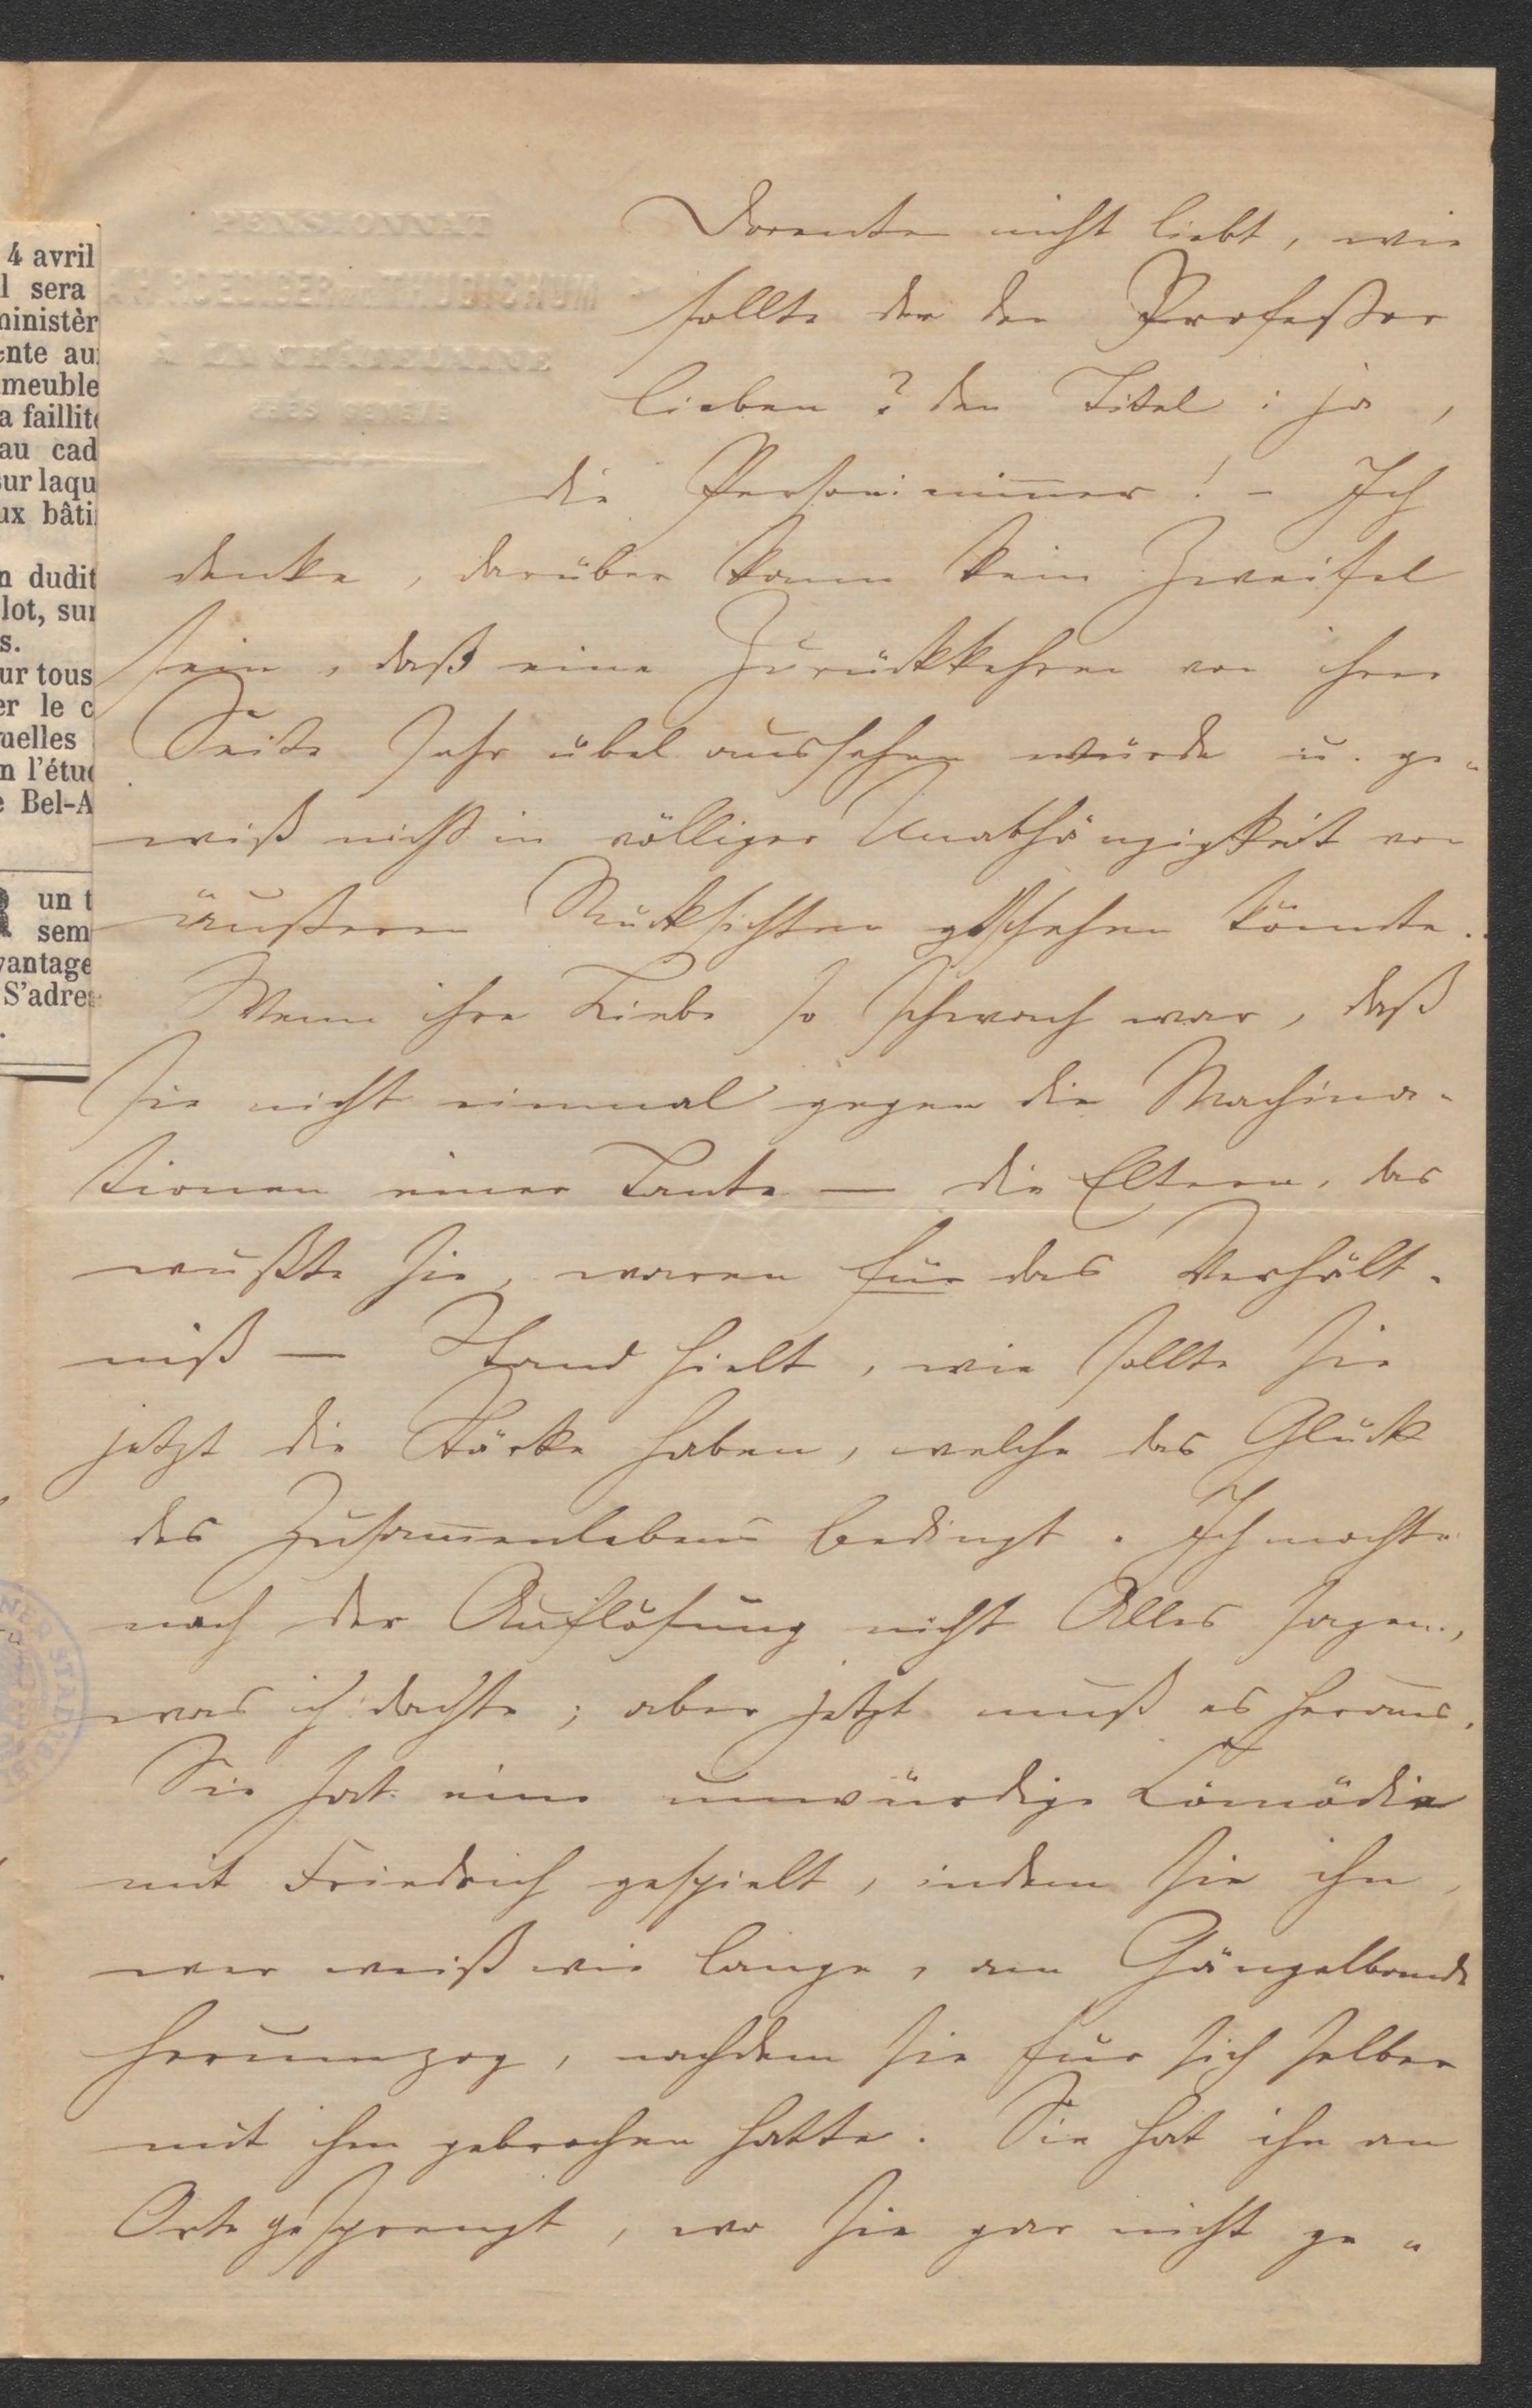 4 avril
l sera
ministèr
ente au
meuble
a faillite
au cad
sur laqu
ux bâti
n dudit
lot, sur
s.
ur tous
er le c
uelles
n l'étu
e Bel-A
un t
sem
vantage
S'adres
nicht liebt, wie
sollte der den Professor
lieben? den Titel: ja,
die Person: nimmer! – Ich
denke, darüber kann kein Zweifel
sein, daß eine Zurückkehren von ihrer
Seite sehr übel aussehen würde u. ge-
wiß nicht in völliger Unabhängigkeit von
äußeren Rücksichten geschehen könnte.
Wenn ihre Liebe so schwach war, daß
sie nicht einmal gegen die Machina-
tionen einer Tante — die Eltern, das
wußte sie, waren für das Verhält-
niß — Stand hielt, wie sollte sie
jetzt die Stärke haben, welche das Glück
des Zusam̄enlebens bedingt. Ich mochte
nach der Auflösung nicht Alles sagen,
was ich dachte; aber jetzt muß es heraus.
Sie hat eine unwürdige Comödie
mit Friedrich gespielt, indem sie ihn,
wer weiß wie lange, am Gängelbande
herumzog, nachdem sie für sich selber
mit ihm gebrochen hatte. Sie hat ihn an
Orte gesprengt, wo sie gar nicht ge-